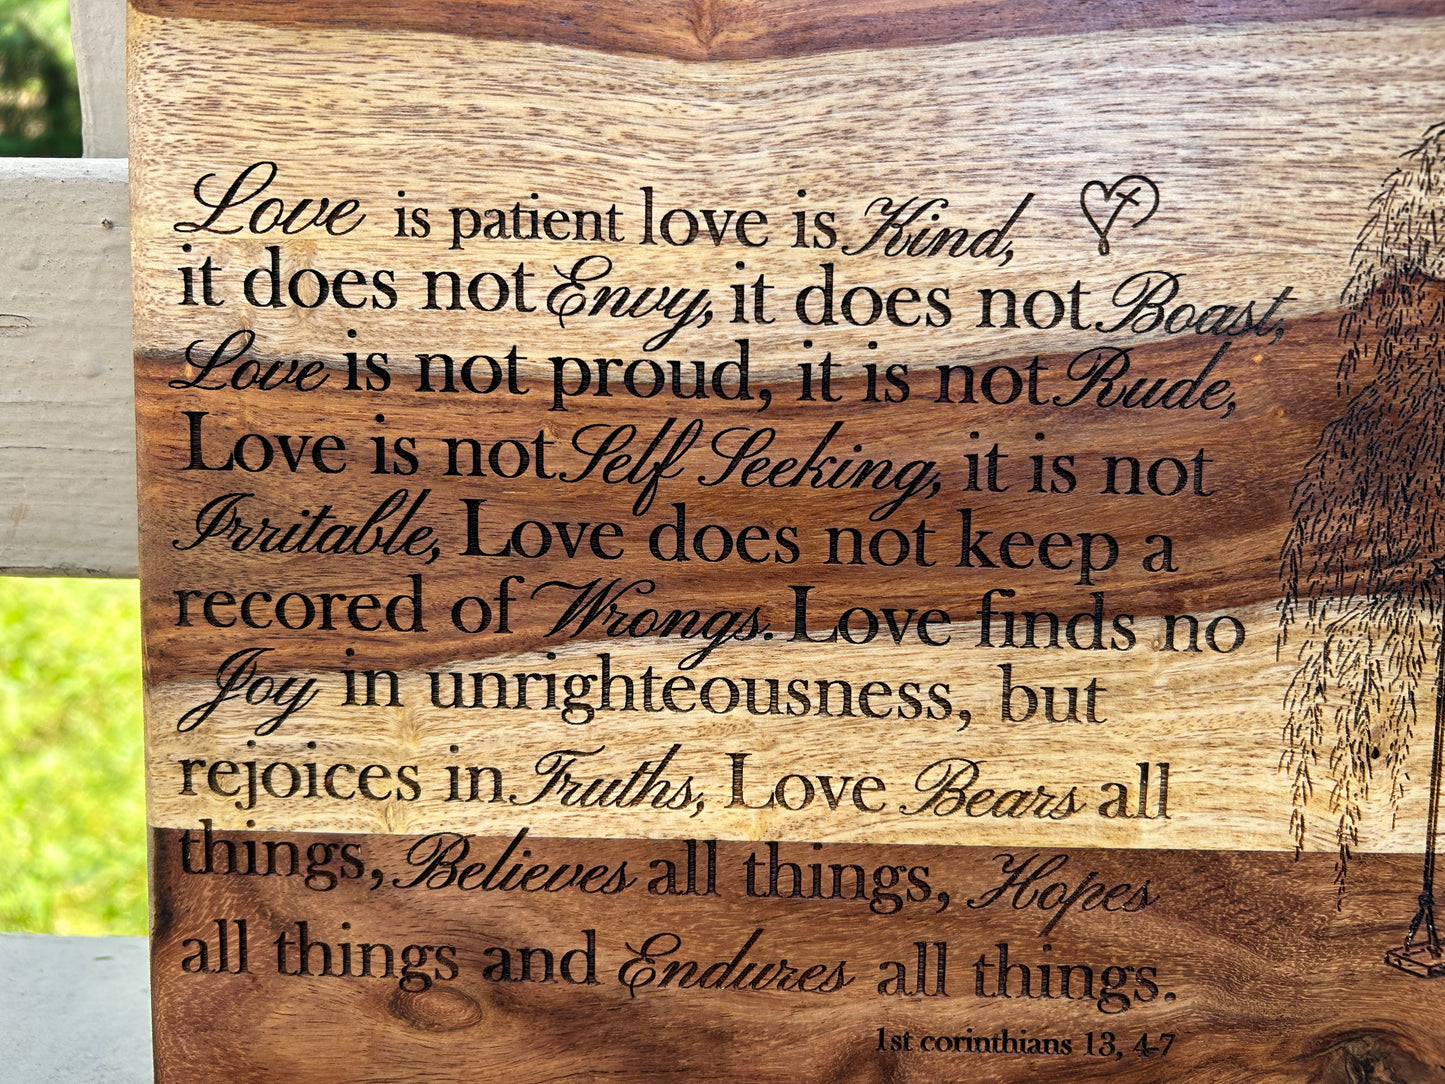 Love is patient love is Kind,
it does not Envy, it does not Boast,
Love is not proud, it is not Rude,
Love is not Self Seeking, it is not
Irritable, Love does not keep a
recored of Wrongs. Love finds no
Joy in unrighteousness, but
rejoices in Truths, Love Bears all
things, Believes all things, Hopes
all things and Endures all things.
1st corinthians 13, 4-7